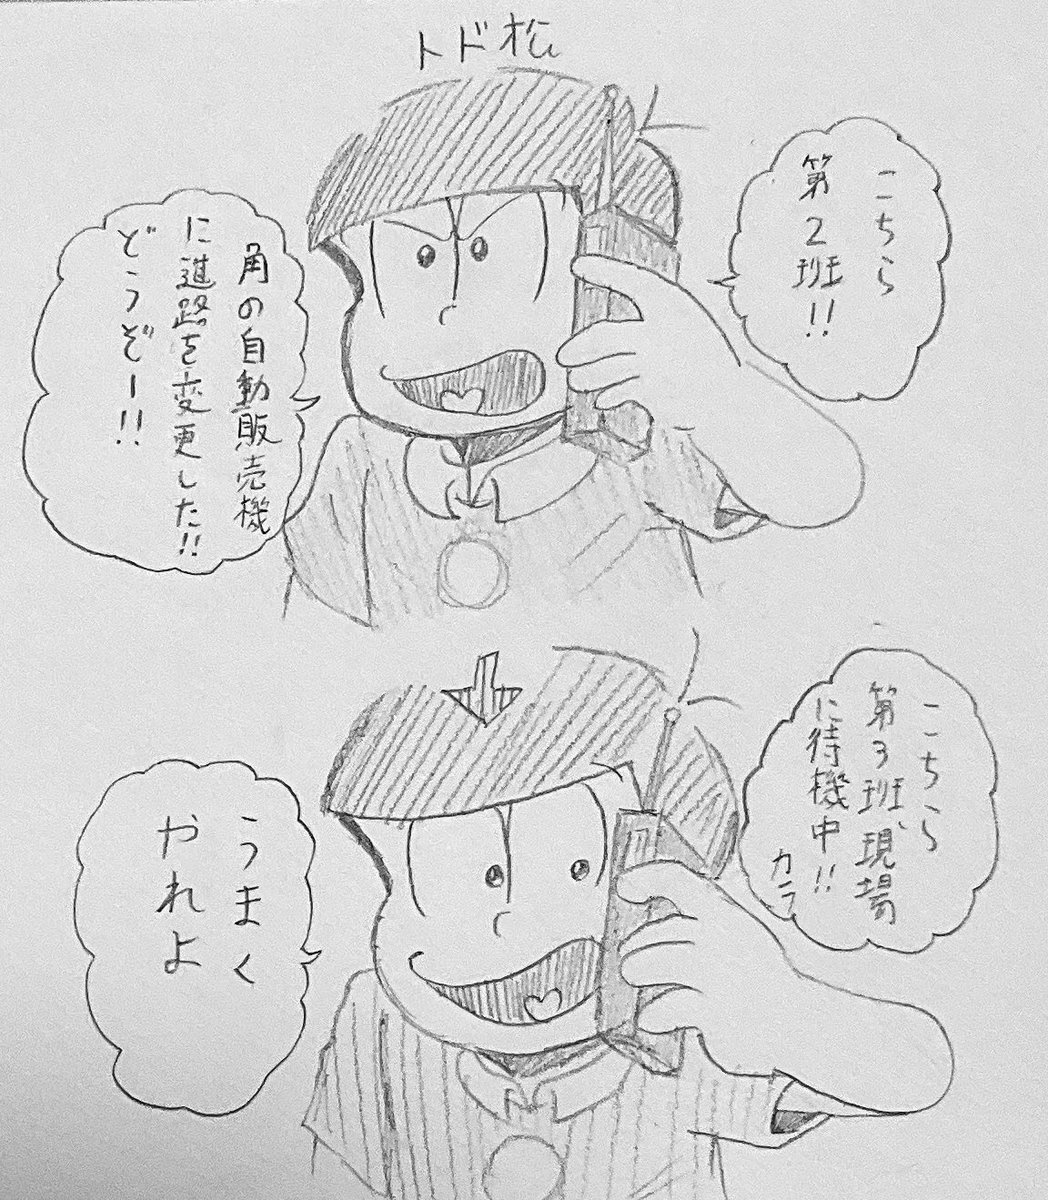 トド松
こちら
第2班!!
角の自動販売機
に進路を変更した!!
どうぞー!!
こちら
第3班、現場
に待機中!!
カラ
うまく
やれよ